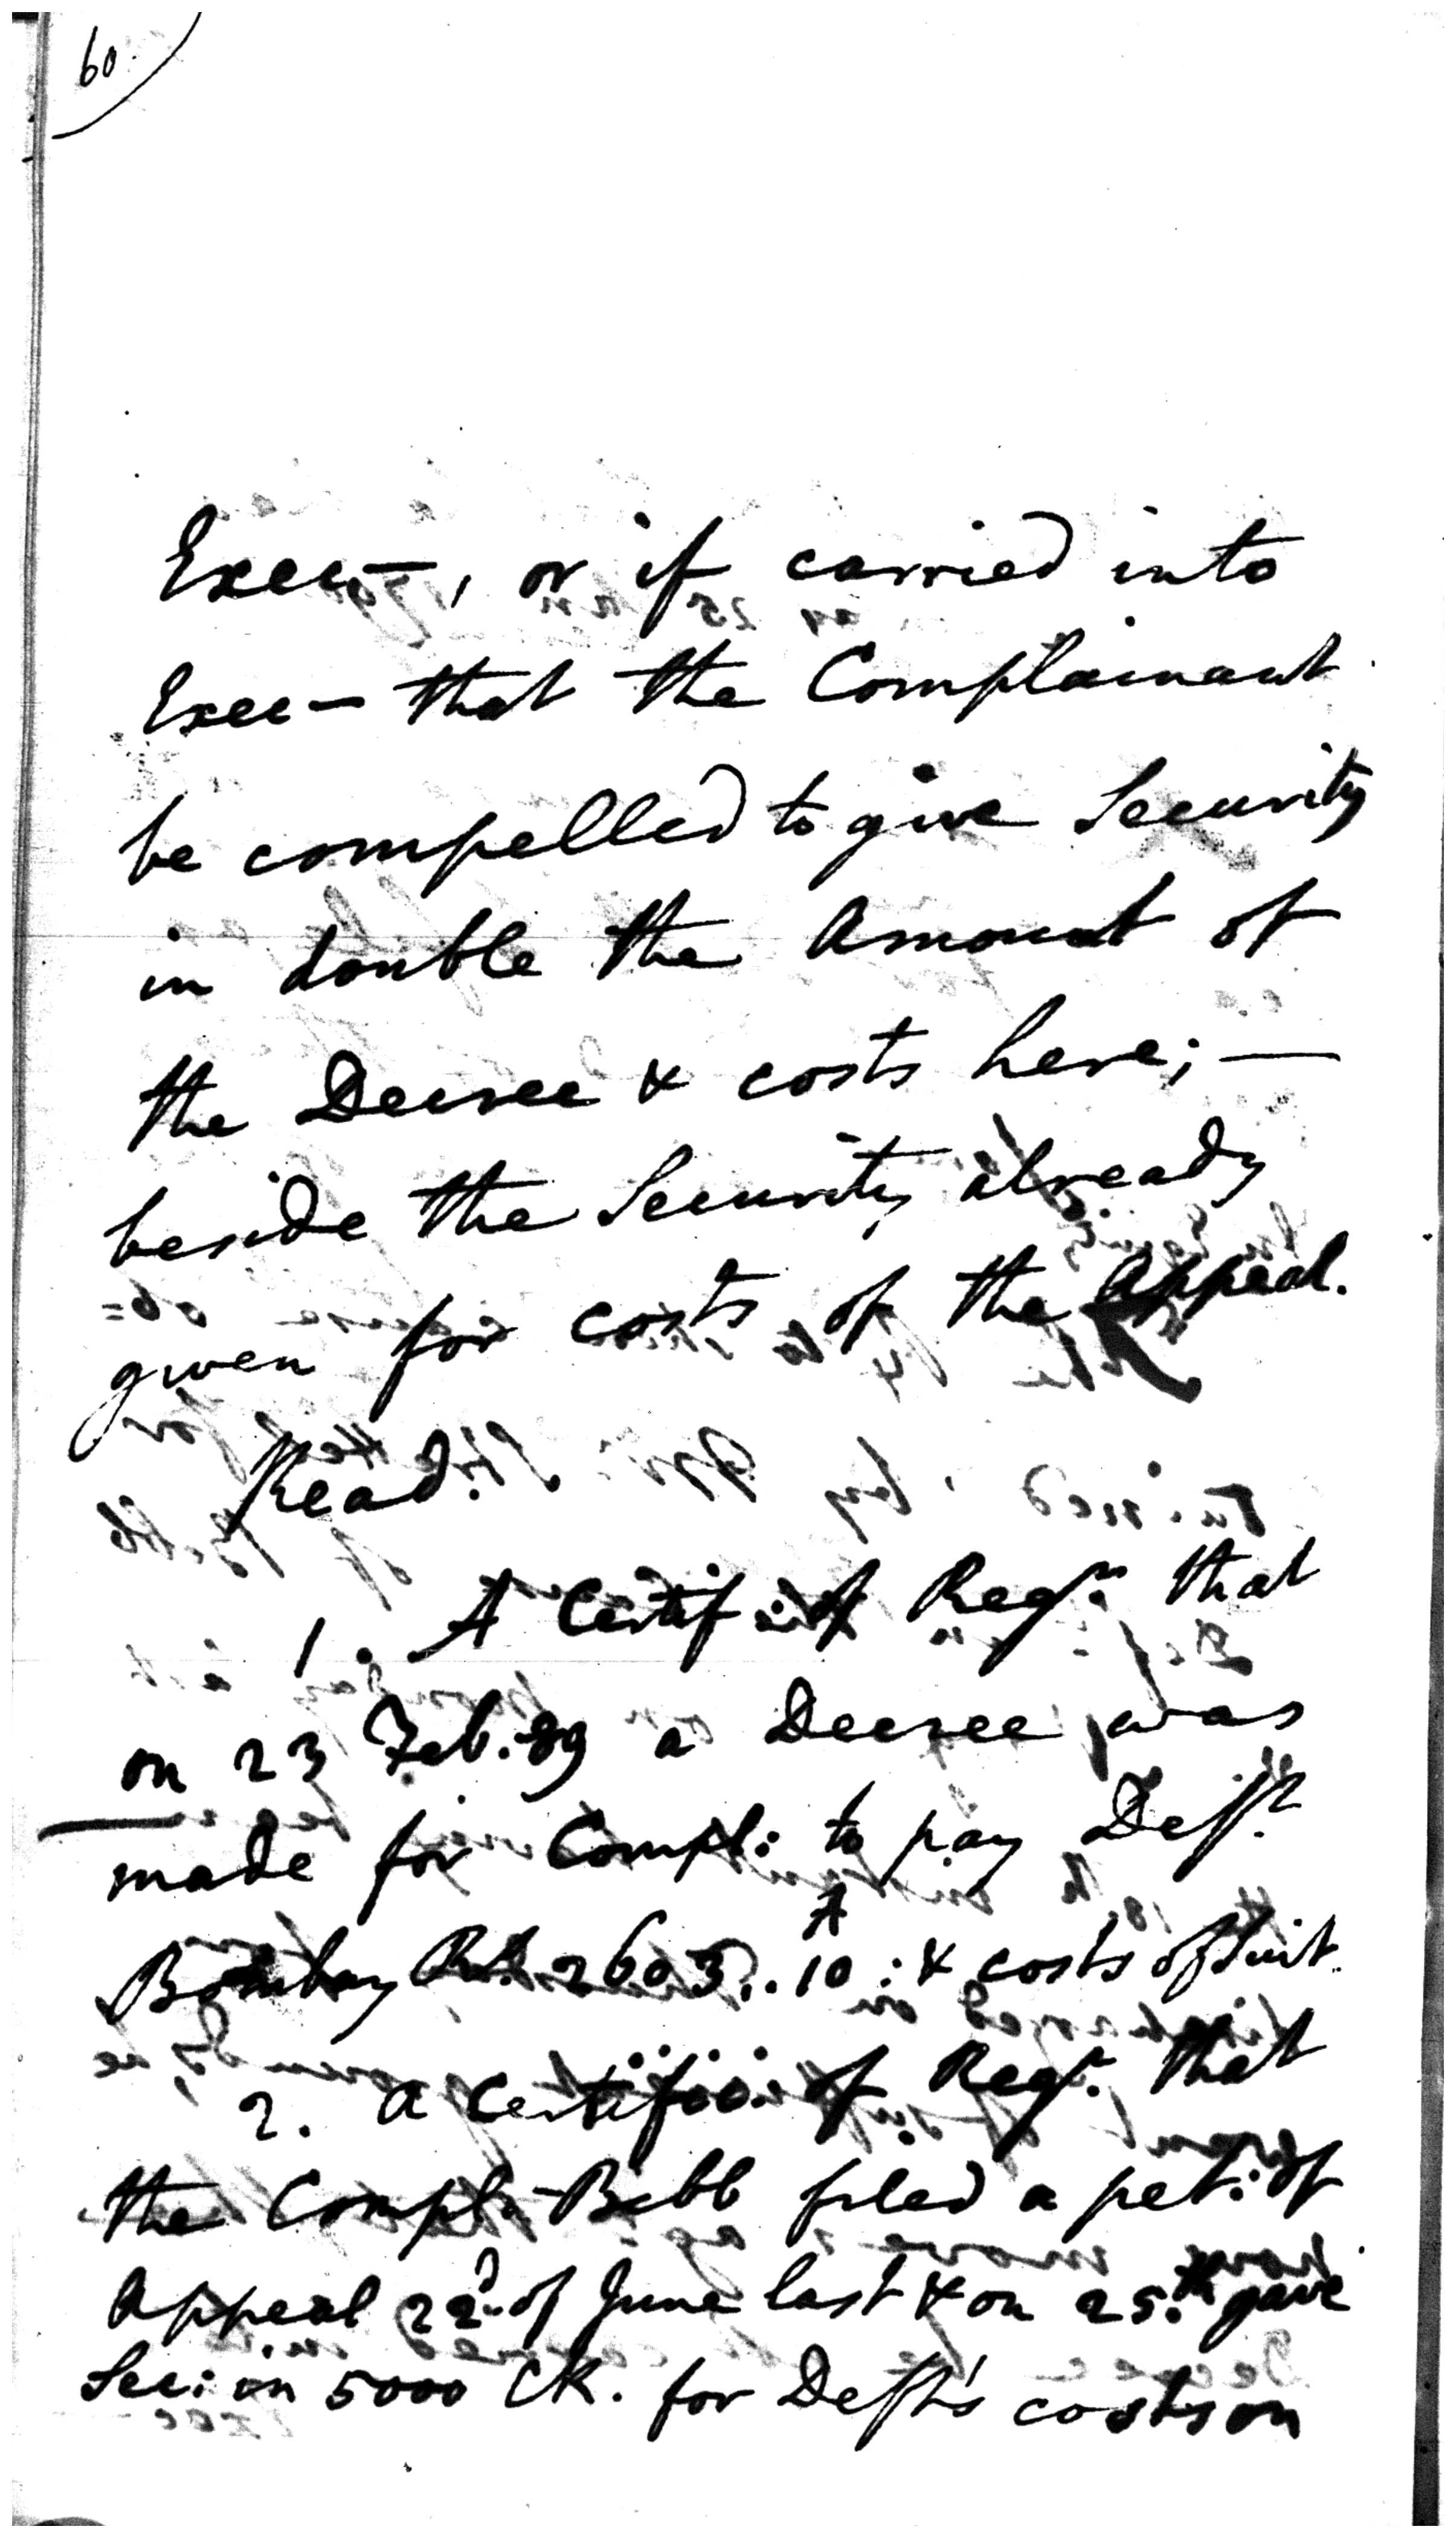 60.
Exec—, or if carried into
Exec— that the Complainant
be compelled to give Security
in double the Amount of
the Decree & costs here; —
beside the Security already
given for costs of the Appeal.
Read.
1. A Certif: of Regr. that
on 23 Feb. 89 a Decree was
made for Compl: to pay Deft.
Bombay Rs. 2603..10 A: & costs of suit.
2. A Certific: of Regr. that
the Compl: Bebb filed a pet: of
Appeal 22d. of June last & on 25.th gave
Sec: in 5000 CR. for Deft's costs on